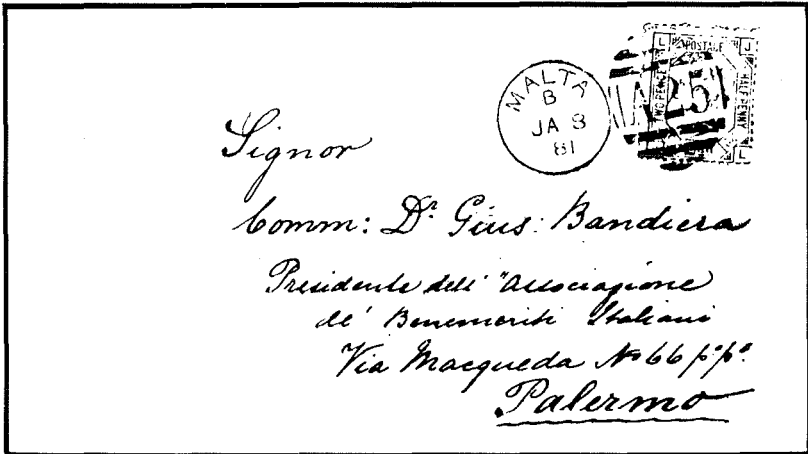 MALTA
B
JA 3
81
A25
L POSTAGE J
TWO PENCE
HALF PENNY
L
Signor
Comm: Dr. Gius: Bandiera
Presidente dell' "Associazione
de' Benemeriti Italiani
Via Macqueda No 66 p.o p.o
Palermo